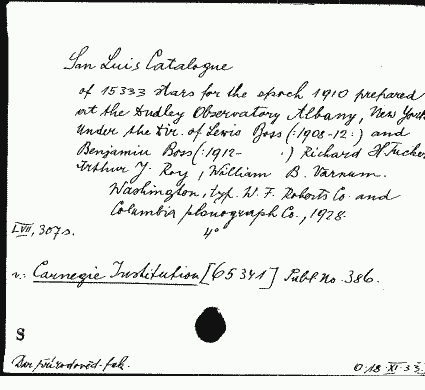 San Luis Catalogue
of 15333 stars for the epoch 1910 prepared
at the Dudley Observatory Albany, New York
under the dir. of Lewis Boss (:1908-12:) and
Benjamin Boss (:1912- :) Richard H Tucker
Arthur J. Roy, William B. Varnum.
Washington, typ. W. F. Roberts Co. and
Columbia planograph Co., 1928.
LVII, 307 s. 4°
v.: Carnegie Institution [65341] Publ. No. 386.
S
Dar přírodověd. fak. 0.18 XI.33.